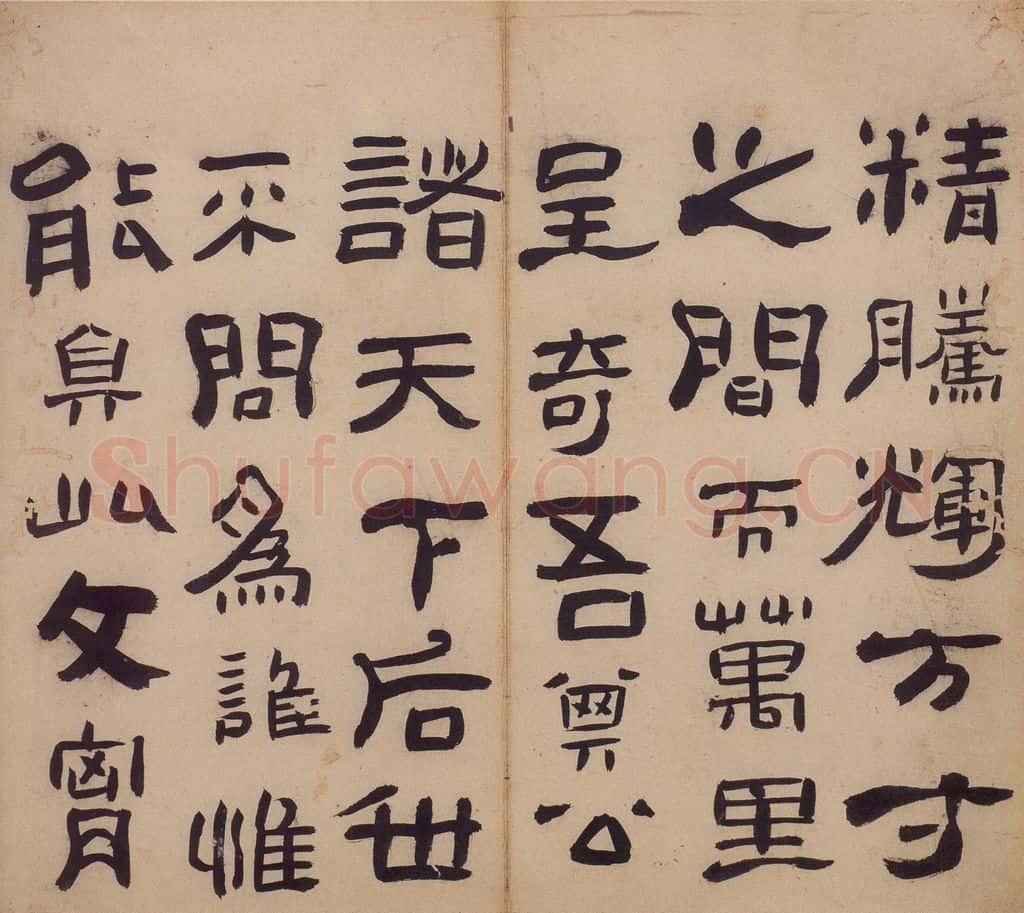 精騰輝方寸
之間而萬里
呈奇吾公
諸天下后世
来問為誰惟
能具文胷
Shufawang.CN